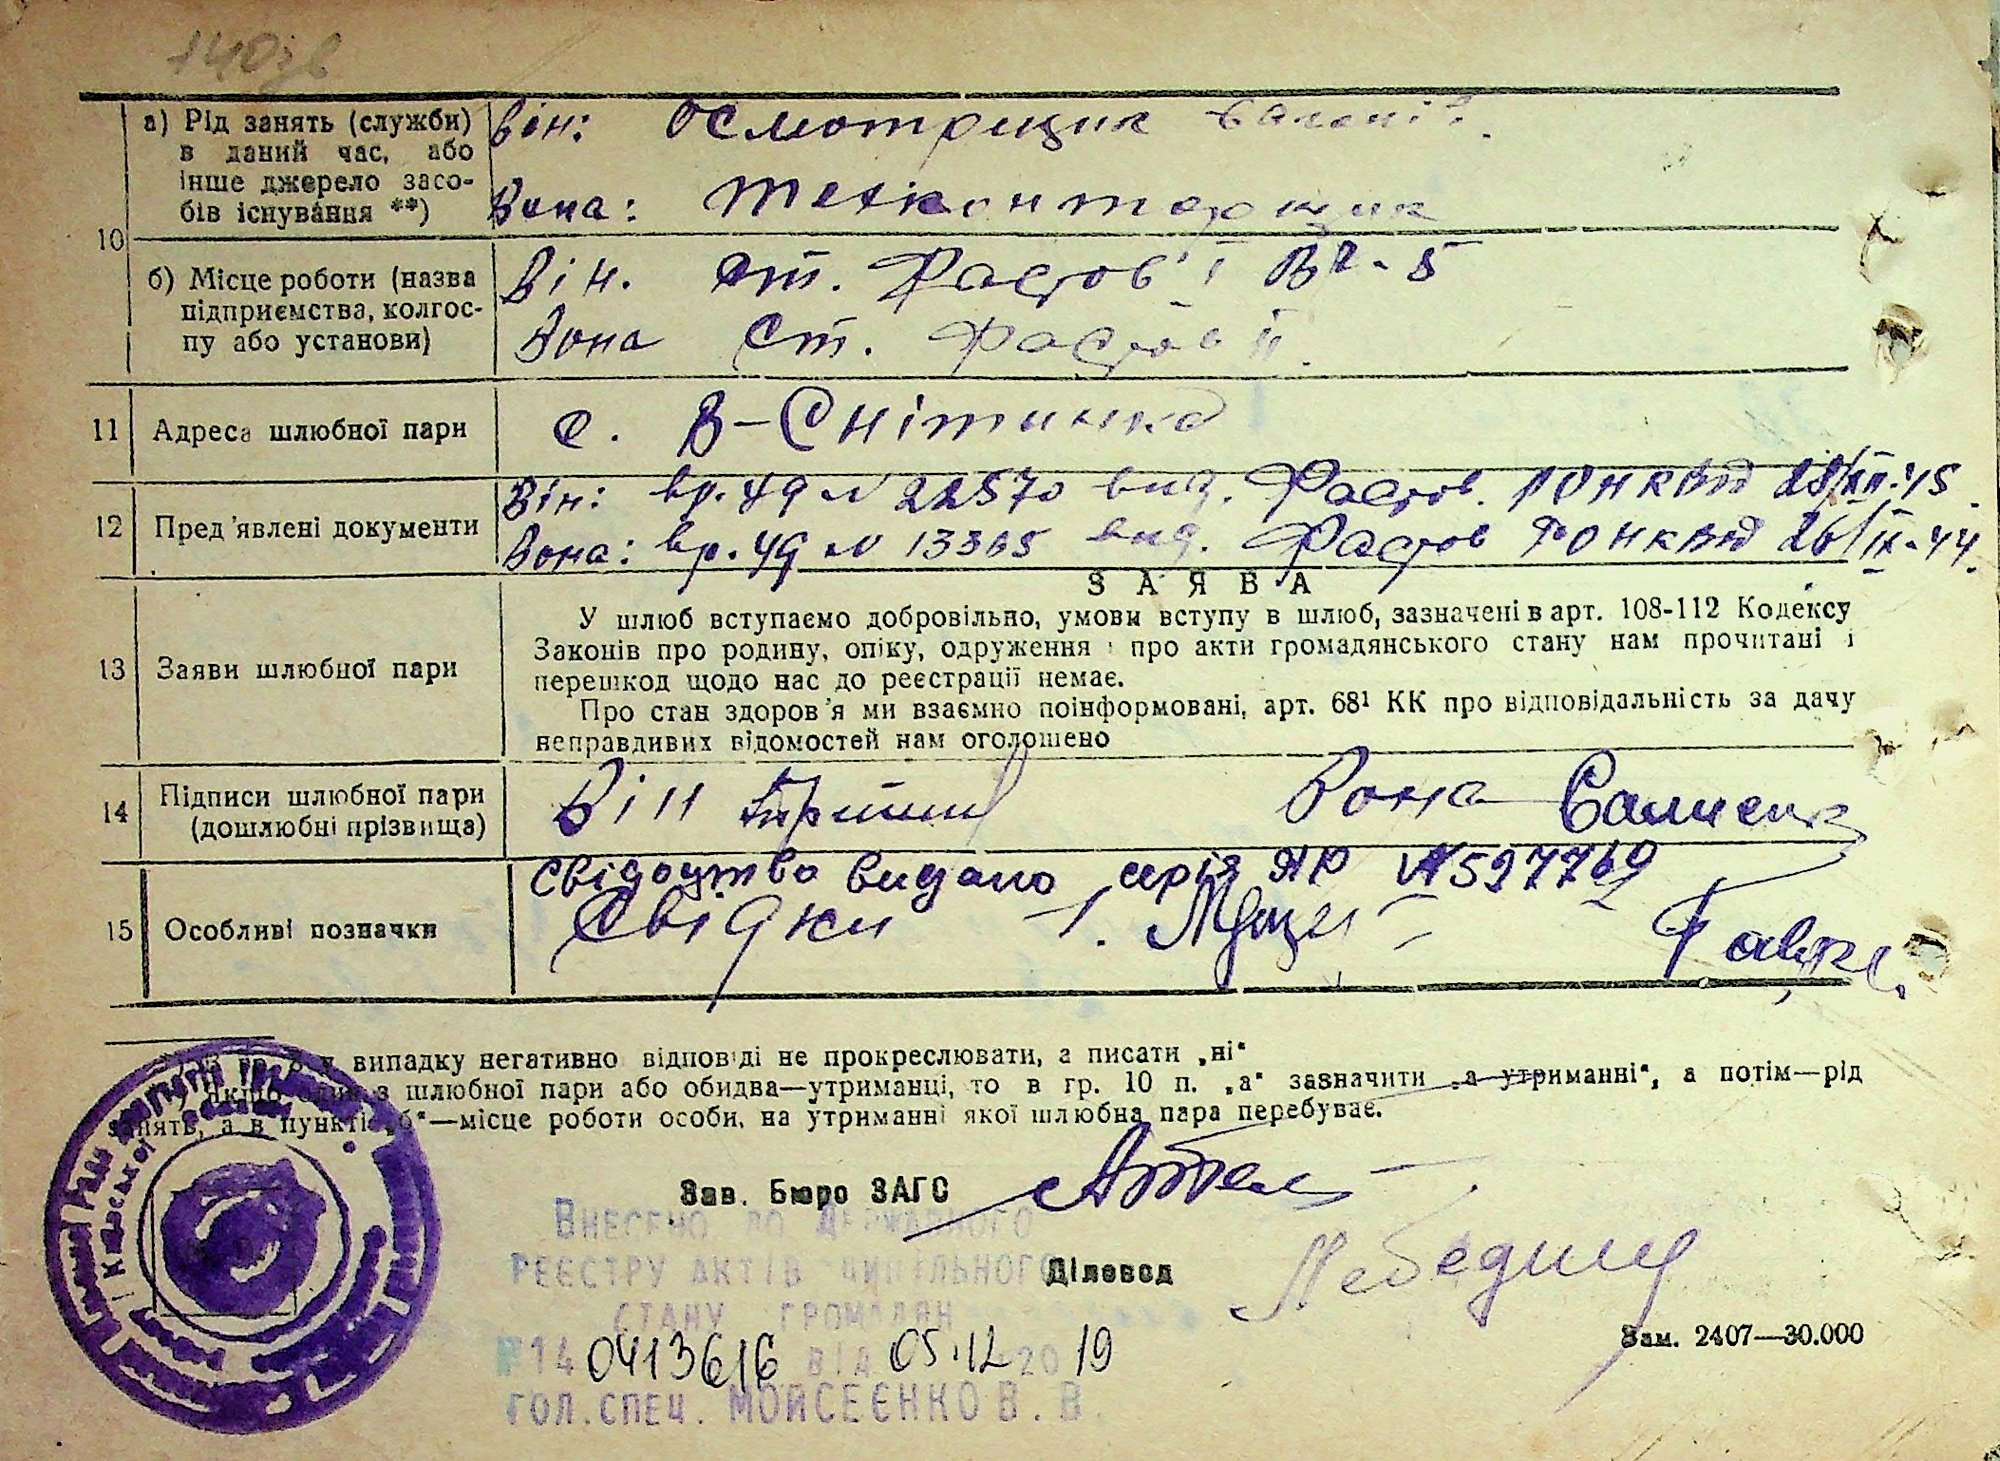 140зв
10
а) Рід занять (служби)
в даний час, або
інше джерело засо-
бів існування **)
він: Осмотрщик вагонів.
Вона: Техконторщик
б) Місце роботи (назва
підприємства, колгос-
пу або установи)
Він. ст. Фастов I ВЧ-5
Вона ст. Фастов II.
11 Адреса шлюбної пари
с. В-Снітинка
12 Пред'явлені документи
Він: вр. уд № 22570 вид. Фастов. РОНКВД 28/XII-45
Вона: вр. уд № 13365 вид. Фастов РОНКВД 26/IX-44.
ЗАЯВА
13 Заяви шлюбної пари
У шлюб вступаємо добровільно, умови вступу в шлюб, зазначені в арт. 108-112 Кодексу
Законів про родину, опіку, одруження і про акти громадянського стану нам прочитані і
перешкод щодо нас до реєстрації немає.
Про стан здоров'я ми взаємно поінформовані, арт. 68¹ КК про відповідальність за дачу
неправдивих відомостей нам оголошено
14 Підписи шлюбної пари
(дошлюбні прізвища)
Він Вона
15 Особливі позначки
Свідоцтво видано серія ЯЮ №597760
Свідки 1. 2
випадку негативно відповіді не прокреслювати, а писати „ні“
якщо один з шлюбної пари або обидва—утриманці, то в гр. 10 п. „а“ зазначити „а утриманні“, а потім—рід
занять, а в пункті „б“—місце роботи особи, на утриманні якої шлюбна пара перебуває.
Зав. Бюро ЗАГС
Внесено до Державного
реєстру актів цивільного
Діловод
стану громадян
Р140413616 від 05.12 2019
гол.спец. Мойсеєнко В. В.
Зам. 2407—30.000